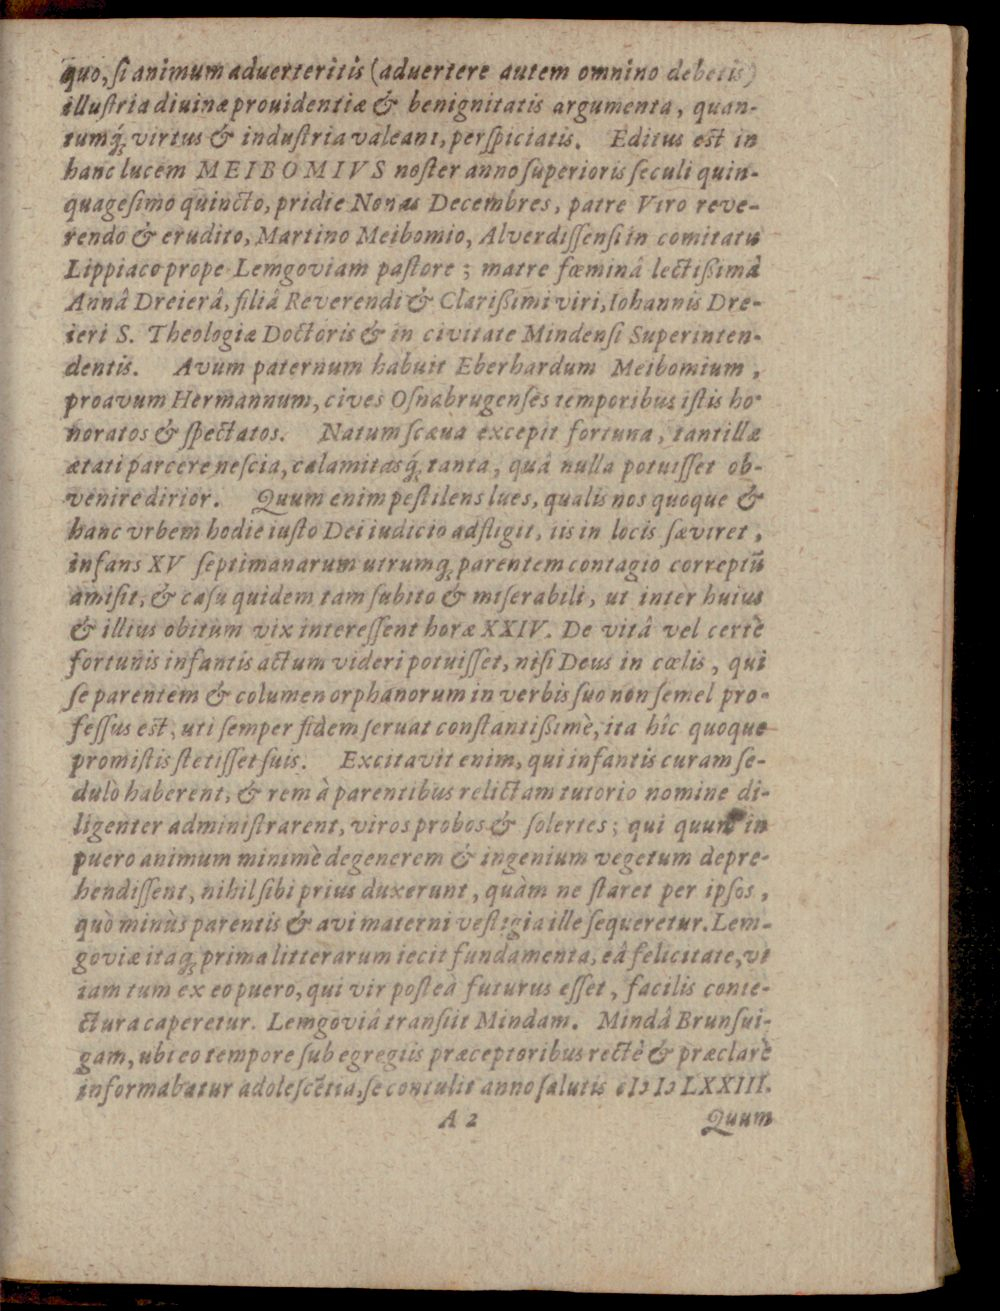 quo, ſi animum aduerteritis (aduertere autem omnino debetis)
illuſtria diuinæ prouidentiæ & benignitatis argumenta, quan-
tumq́; virtus & induſtria valeant, perſpiciatis. Editus eſt in
hanc lucem MEIBOMIVS noſter anno ſuperioris ſeculi quin-
quageſimo quincto, pridie Nonas Decembres, patre Viro reve-
rendo & erudito, Martino Meibomio, Alverdiſſenſi in comitatu
Lippiaco prope Lemgoviam paſtore; matre fœminâ lectißimâ
Annâ Dreierâ, filiâ Reverendi & Clarißimi viri, Iohannis Dre-
ieri S. Theologiæ Doctoris & in civitate Mindenſi Superinten-
dentis. Avum paternum habuit Eberhardum Meibomium,
proavum Hermannum, cives Oſnabrugenſes temporibus iſtis ho-
noratos & ſpectatos. Natum ſcæua excepit fortuna, tantillæ
ætati parcere neſcia, calamitasq́; tanta, quâ nulla potuiſſet ob-
venire dirior. Quum enim peſtilens lues, qualis nos quoque &
hanc vrbem hodie iuſto Dei iudicio adfligit, iis in locis ſæviret,
infans XV ſeptimanarum utrumq; parentem contagio correptū
amiſit, & caſu quidem tam ſubito & miſerabili, ut inter huius
& illius obitum vix intereſſent horæ XXIV. De vitâ vel certè
fortunis infantis actum videri potuiſſet, niſi Deus in cœlis, qui
ſe parentem & columen orphanorum in verbis ſuo non ſemel pro-
feſſus eſt, uti ſemper fidem ſeruat conſtantißimè, ita hîc quoque
promiſtis ſtetiſſet ſuis. Excitavit enim, qui infantis curam ſe-
dulò haberent, & rem à parentibus relictam tutorio nomine di-
ligenter adminiſtrarent, viros probos & ſolertes; qui quum in
puero animum minimè degenerem & ingenium vegetum depre-
hendiſſent, nihil ſibi prius duxerunt, quàm ne ſtaret per ipſos,
quò minùs parentis & avi materni veſtigia ille ſequeretur. Lem-
goviæ itaq; prima litterarum iecit fundamenta, eâ felicitate, vt
iam tum ex eo puero, qui vir poſteà futurus eſſet, facilis conie-
ctura caperetur. Lemgoviâ tranſiit Mindam. Mindâ Brunſui-
gam, ubi eo tempore ſub egregiis præceptoribus rectè & præclarè
informabatur adoleſcētia, ſe contulit anno ſalutis cIↃ IↃ LXXIII.
A 2 Quum